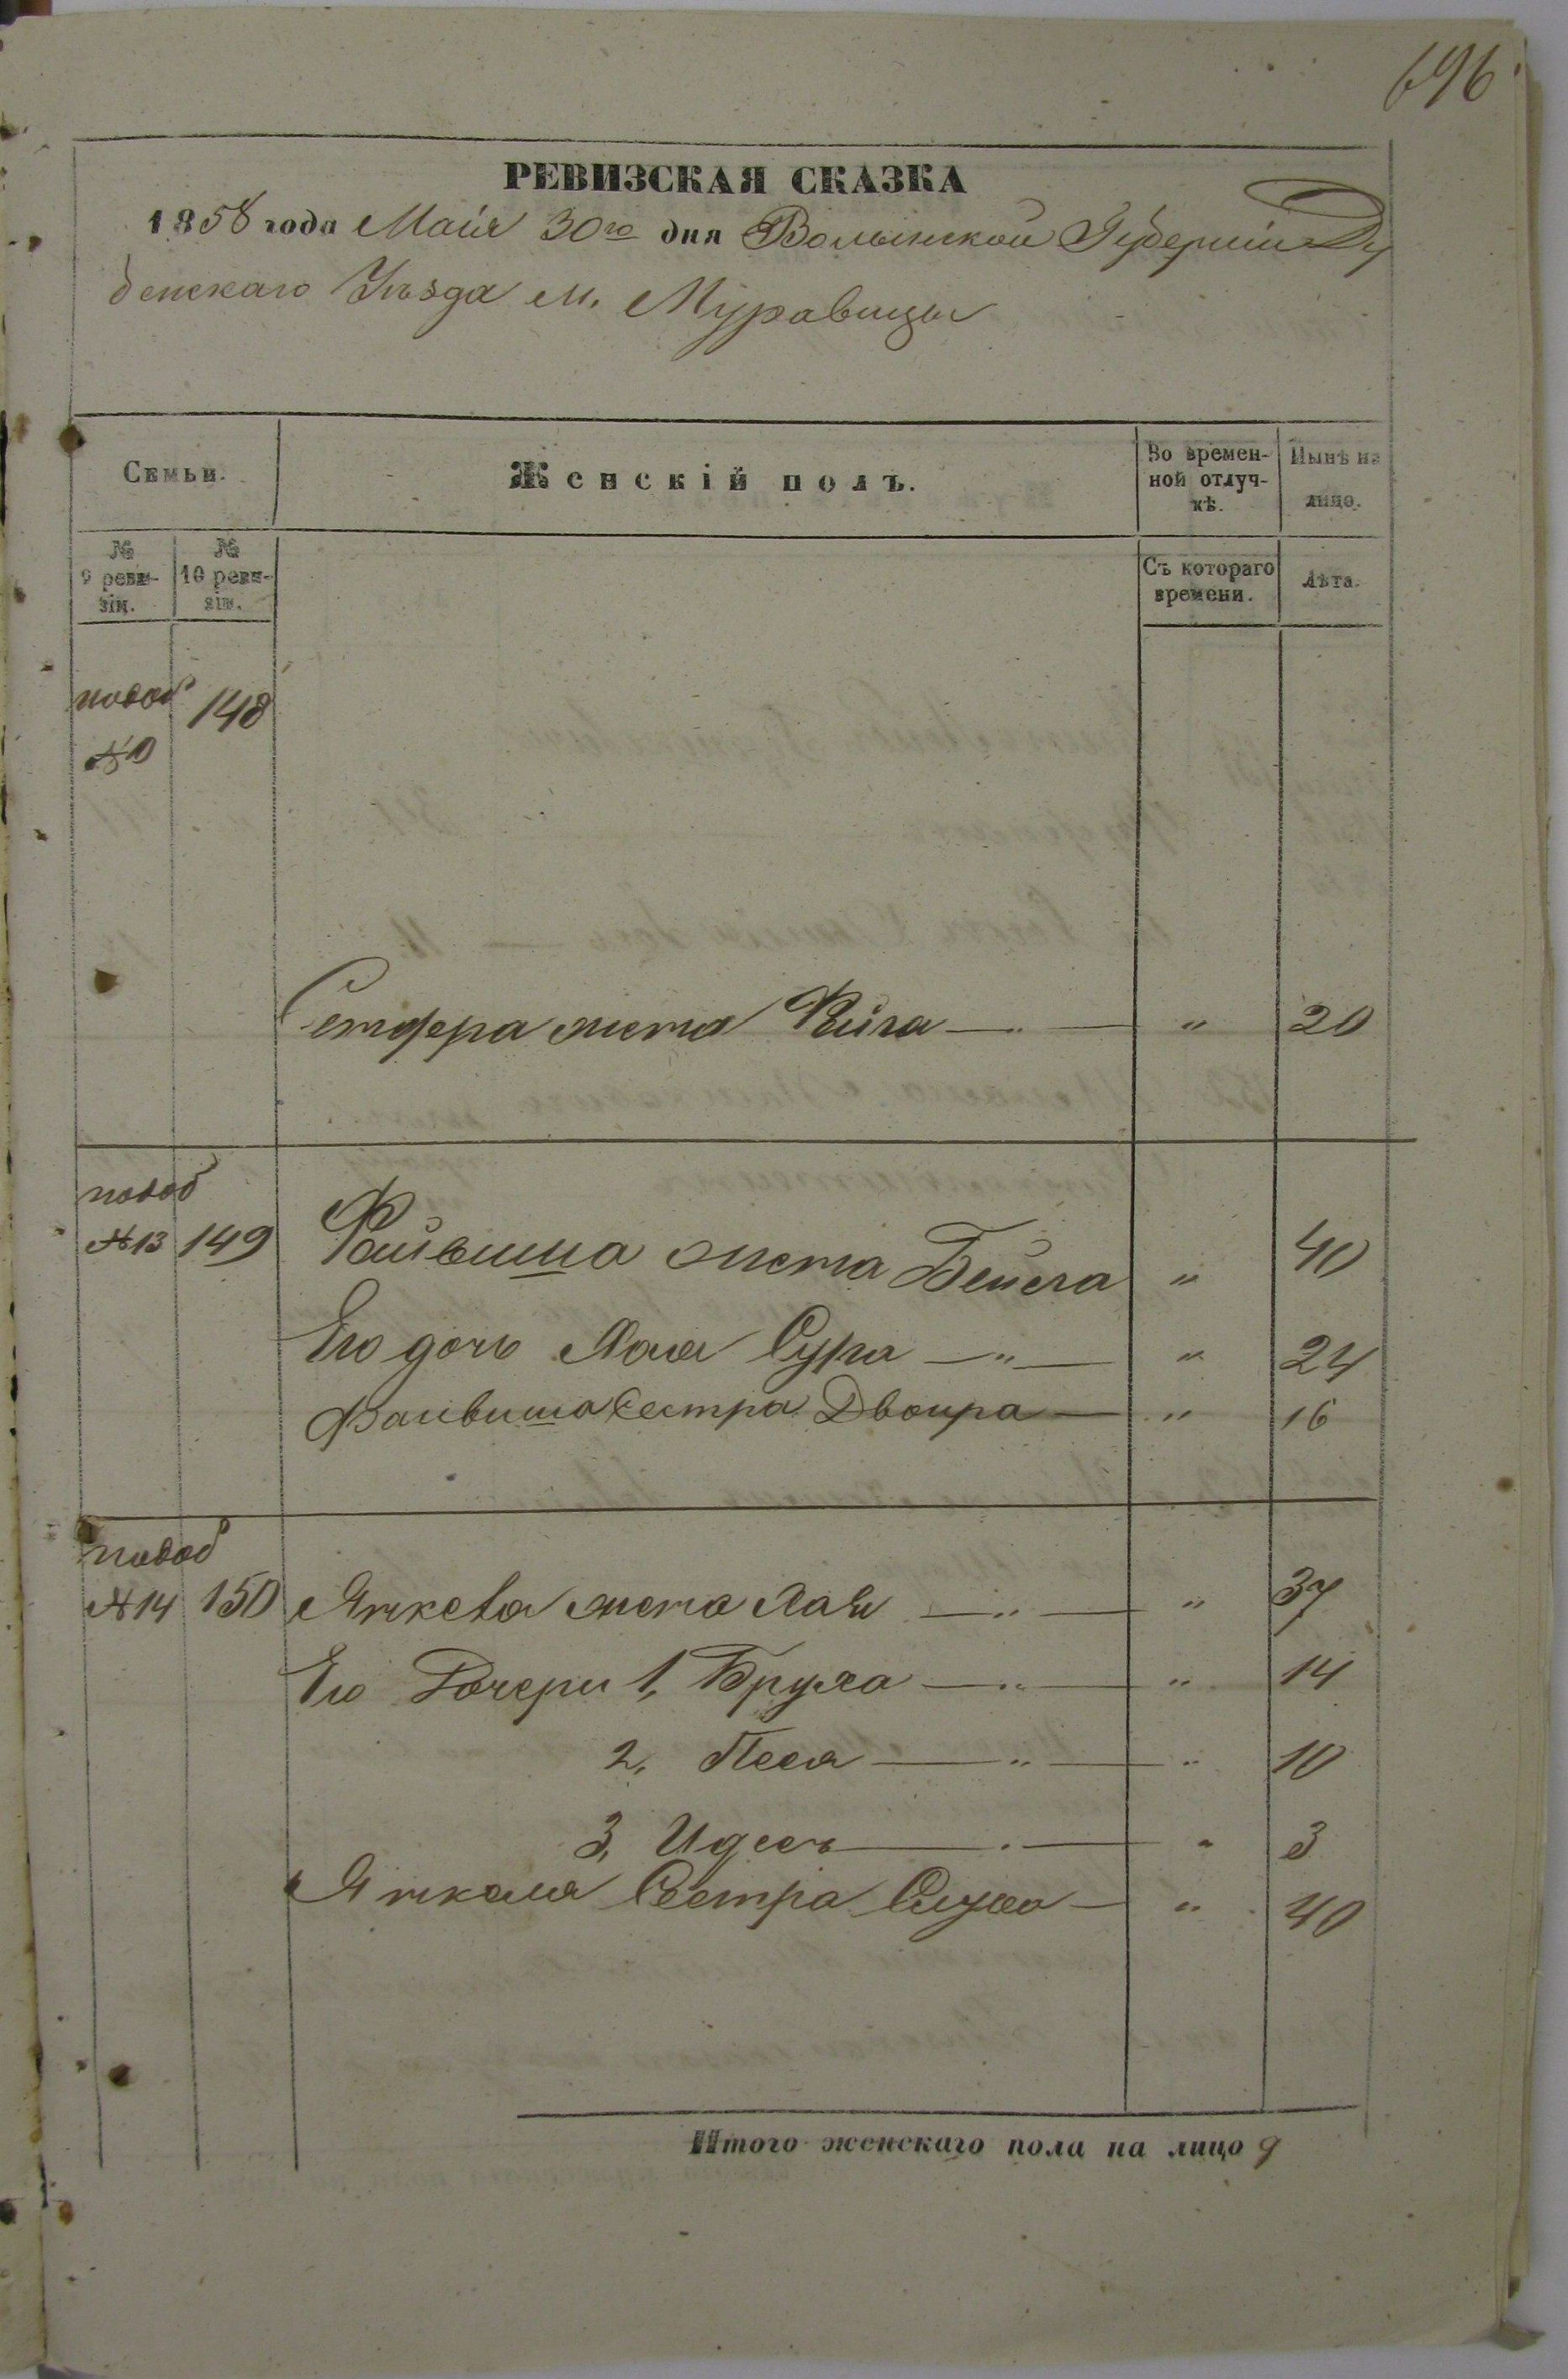 696
РЕВИЗСКАЯ СКАЗКА
1858 года Маія 30го дня Волынской Губерніи Ду
бенскаго Уѣзда м. Муравицы
Семьи.
Женскій полъ.
Во времен-
ной отлуч-
кѣ.
Нынѣ на
лицо.
№
9 реви-
зіи.
№
10 реви-
зіи.
Съ котораго
времени.
Лѣта.
148
жена " 20
№13 149 Файвиша жена Бейла " 40
Его дочь Хая Сура — " — " 24
Файвиша сестра Двойра — " 16
№14 150 жена Хая — " — " 37
Его Дочери 1, Бруха — " — " 14
2, Песя — " — " 10
3, Идесъ — " — " 3
Сестра — " 40
Итого женскаго пола на лицо 9